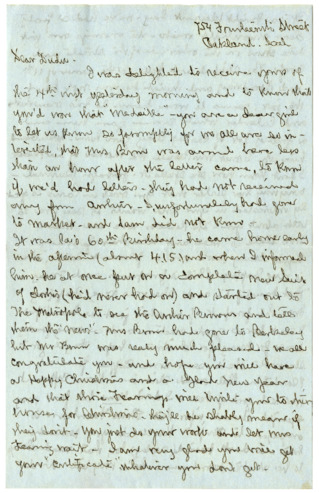 754 Fourteenth Street
Oakland. Cal
Dear
I was delighted to receive yours of
the 4th inst yesterday morning and to know that
you'd won that "Medaille" - you are a dear girl
to let us know so promptly for we all are so in-
terested, that Mrs was around here less
than an hour after the letter came, to know
if we'd had letters - they had not received
any from Arthur - I unfortunately had gone
to market - and Sam did not know
It was Pa's 60th Birthday - he came home early
in the afternoon (about 4.15) and when I informed
him he at once put on a complete new suit
of clothes (he'd never had on) and started out to
the Metropole to see the Arthur and tell
them the news. Mrs had gone to Berkeley
but Mr was really much pleased. We all
congratulate you - and hope you will have
a Happy Christmas and a Glad New Year
and that those will invite you to
for . They'll be shabby means if
they don't - You just do your work and let
wait - I am very glad you will get
your "certificate" whatever you don't get -